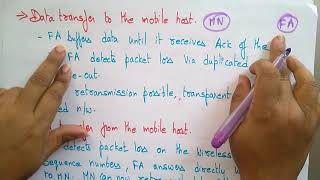 Data transfer to the mobile host.
MN FA
- FA buffers data until it receives Ack of the
FA detects packet loss via duplicated
e-out.
retransmission possible, transparent
ed n/w.
from the mobile host.
detects packet loss on the wireless
sequence numbers, FA answers directly
to MN. MN can now